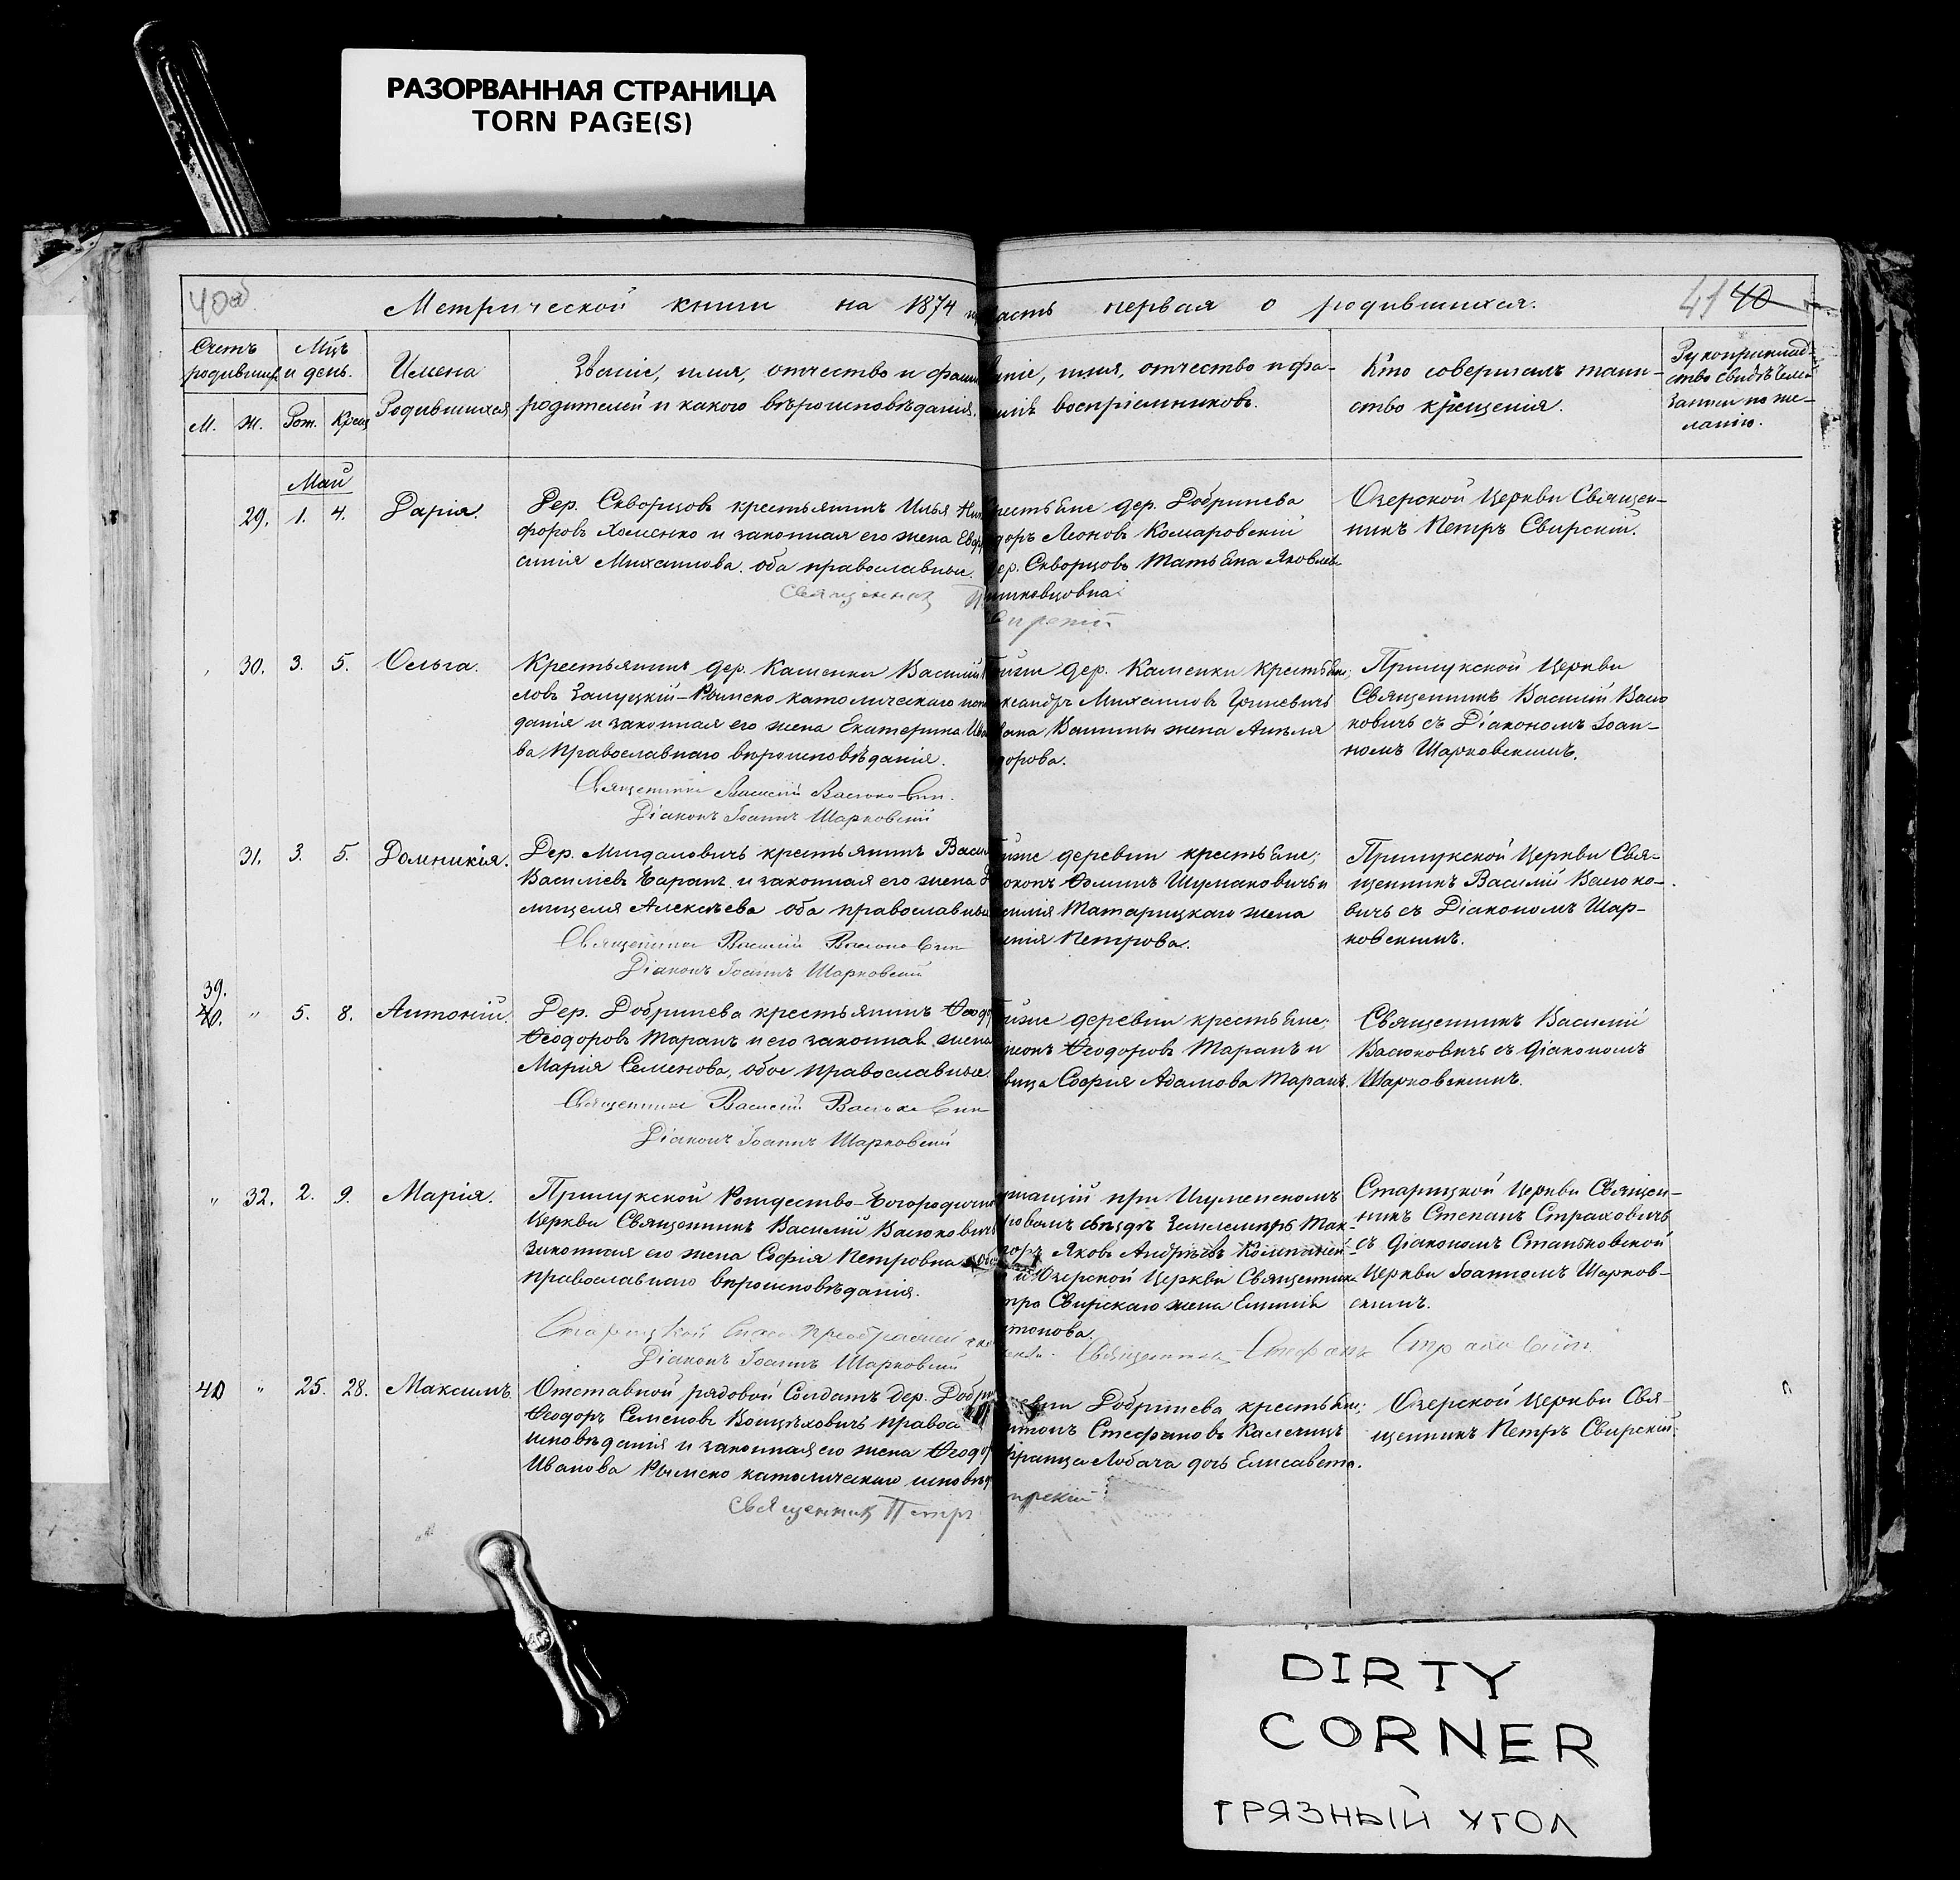 РАЗОРВАННАЯ СТРАНИЦА
TORN PAGE(S)
40об
Метрической книги на 1874
часть первая о родившихся.
41 40
Счетъ родившихся
Мцъ и день.
М. Ж. Рож. Крещ.
Имена Родившихся
Званіе, имя, отчество и фами
родителей и какого вѣроисповѣданія.
аніе, имя, отчество и фа-
миліѣ воспріемниковъ.
Кто совершалъ таин-
ство крещенія.
Рукоприклад-
ство свидѣтелей
записи по же-
ланію.
Май
29. 1. 4. Дарія.
Дер. Скворцовъ крестьянинъ Илья Ник
форовъ Хоменко и законная его жена Евф
синія Михаилова. оба православные.
Священник П
рестьяне дер. Добринева
доръ Леоновъ Комаровскій
дер. Скворцовъ Татьяна Яковлева
шковцовна
Свирскій
Озерской Церкви Священ-
никъ Петръ Свирскій.
30. 3. 5. Ольга.
Крестьянинъ дер. Каменки Василій
словъ Залуцкій-Римско католическаго испо
данія и законная его жена Екатерина Ива
ва Православнаго вѣроисповѣданія.
Священникъ Василій Васюкович
Діаконъ Іоаннъ Шарковскій
дер. Каменки крестьяне;
ександръ Михаиловъ Гриневичъ
жена Анеля
дорова.
Прилукской Церкви
Священникъ Василій Васю
ковичъ съ Діакономъ Іоан-
номъ Шарковскимъ.
31. 3. 5. Домникія.
Дер. Мигдаловичъ крестьянинъ Васи
Василіевъ Баранъ и законная его жена
Алексѣева оба православные
Священникъ Василій Васюкович
Діаконъ Іоаннъ Шарковскій
деревни крестьяне;
Ѳоминъ Шумаковичъ и
силія Татарицкаго жена
Петрова.
Прилукской Церкви Свя-
щенникъ Василій Васюко-
вичъ съ Діакономъ Шар-
ковскимъ.
39.
40. " 5. 8. Антоній.
Дер. Добринева крестьянинъ Ѳеодо
Ѳеодоровъ Таранъ и его законная жена
Марія Семенова, обое православные.
Священникъ Василій Васюкович
Діаконъ Іоаннъ Шарковскій
деревни крестьяне;
Ѳеодоровъ Таранъ и
вица Софія Адамова Таранъ.
Священникъ Василій
Васюковичъ съ діакономъ
Шарковскимъ.
" 32. 2. 9. Марія.
Прилукской Рождество-Богородични
Церкви Священникъ Василій Васюковичъ
Законная его жена Софія Петровна об
православнаго вѣроисповѣданія.
Діаконъ Іоаннъ Шарковскій
при Игуменскомъ
ровомъ съѣздѣ Землемѣръ Мак-
Яковъ Андреевъ
и Озерской Церкви Священника
тра Свирскаго жена Емилія
тонова.
Священник Стефанъ Страхович
Старицкой Церкви Священ-
никъ Степанъ Страховичъ
съ діакономъ Станьковской
Церкви Іоанномъ Шарков-
скимъ.
40 " 25. 28. Максимъ.
Отставной рядовой Солдатъ дер. Добри
Ѳеодоръ Семеновъ Войцѣховичъ правосл
исповѣданія и законная его жена Ѳеодо
Иванова Римско католическаго исповѣд
Священник Петръ
евни Добринева крестьяне;
нтонъ Стефановъ Калечицъ
Франца Лобача дочь Елисавета.
ирскій
Озерской Церкви Свя-
щенникъ Петръ Свирскій.
DIRTY
CORNER
ГРЯЗНЫЙ УГОЛ